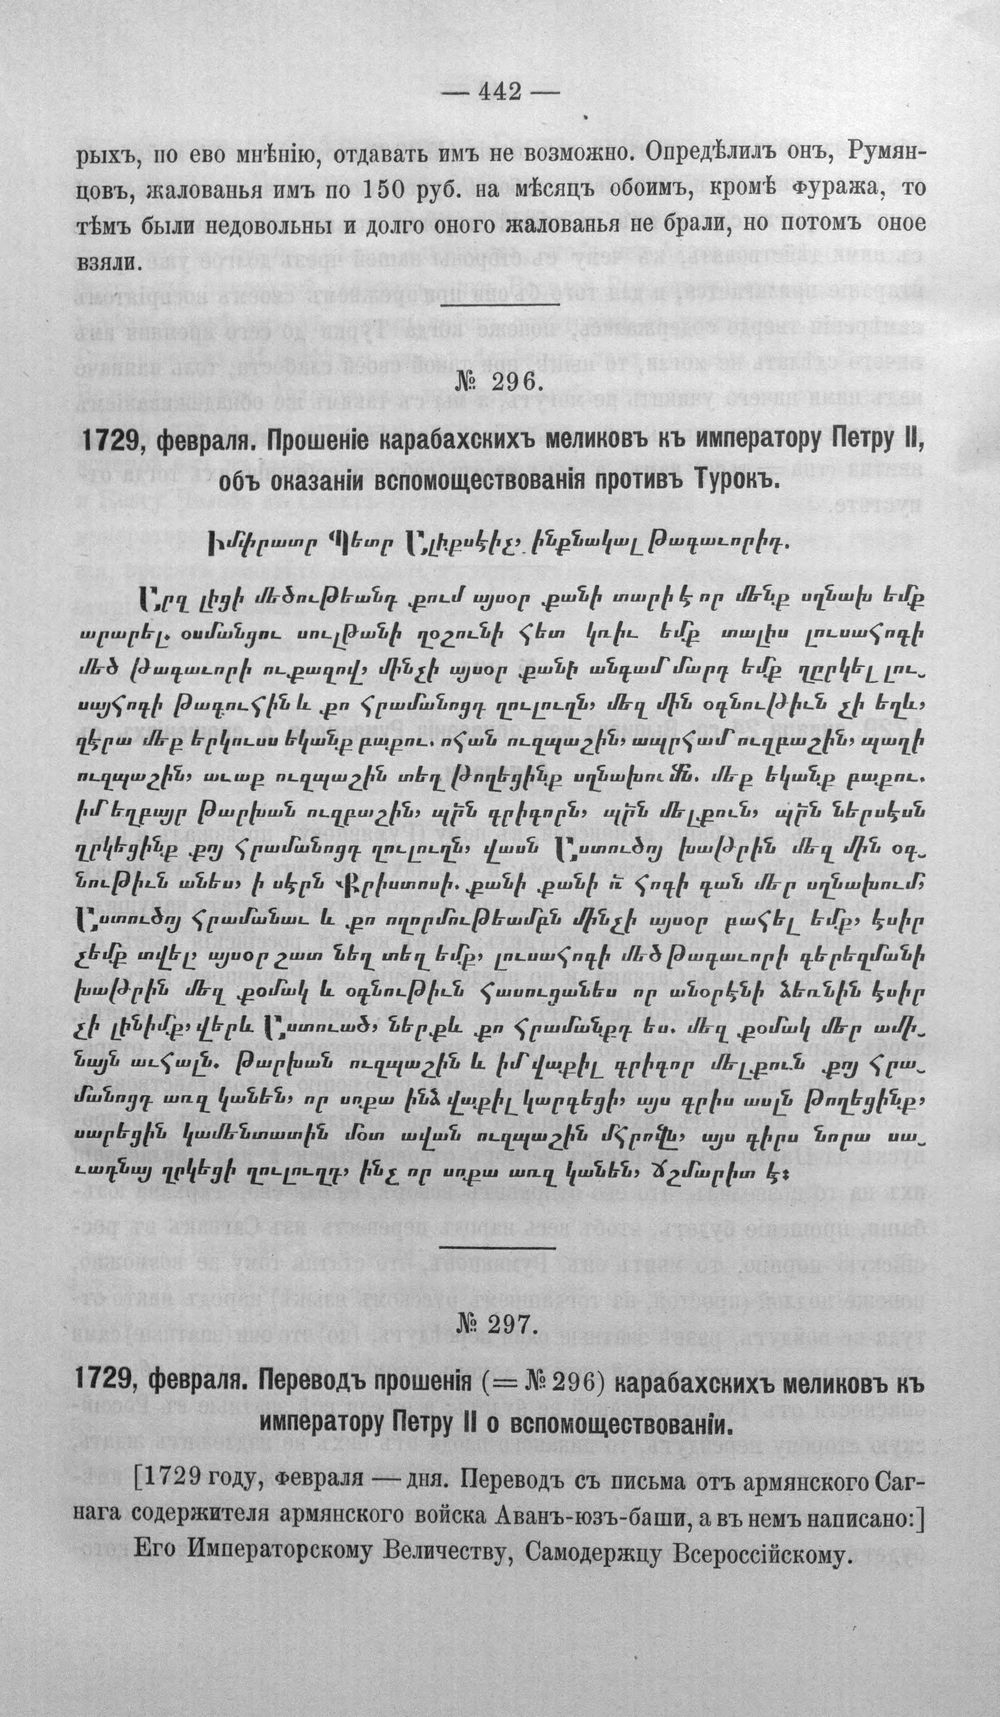 — 442 —
рыхъ, по ево мнѣнію, отдавать имъ не возможно. Опредѣлилъ онъ, Румян-
цовъ, жалованья имъ по 150 руб. на мѣсяцъ обоимъ, кромѣ фуража, то
тѣмъ были недовольны и долго оного жалованья не брали, но потомъ оное
взяли.
№ 296.
1729, февраля. Прошеніе карабахскихъ меликовъ къ императору Петру II,
объ оказаніи вспомоществованія противъ Турокъ.
Իմիրատր Պետր Ալիքսէիչ, ինքնակալ թագաւորիդ.
Արզ լիցի մեծութեանդ քում այսօր քանի տարի է որ մենք սղնախ եմք
արարել. օսմանցու սուլթանի ղօշունի հետ կռիւ եմք տալիս լուսահոգի
մեծ թագաւորի ուքազով, մինչի այսօր քանի անգամ մարդ եմք ղըրկել լու-
սայհոգի թագուհին և քո հրամանոցդ ղուլուղն, մեզ մին օգնութիւն չի եղև,
ղէրա մեք երկուսս եկանք բաքու. օհան ուզպաշին, ապրհամ ուզբաշին, պաղի
ուզպաշին, աւաք ուզպաշին տեղ թողեցինք սղնախումն. մեք եկանք բաքու.
իմ եղբայր թարխան ուզբաշին, պրն գրիգորն, պրն մելքուն, պրն ներսէսն
ղրկեցինք քոյ հրամանոցդ ղուլուղն, վասն Աստուծոյ խաթրին մեզ մին օգ-
նութիւն անես, ի սէրն Քրիստոսի. քանի քանի ռ հոգի գան մեր սղնախում,
Աստուծոյ հրամանաւ և քո ողորմութեամբն մինչի այսօր բահել եմք, էսիր
չեմք տվել, այսօր շատ նեղ տեղ եմք, լուսահոգի մեծ թագաւորի գերեզմանի
խաթրին մեզ քօմակ և օգնութիւն հասուցանես որ անօրէնի ձեռնին էսիր
չի լինիմք, վերև Աստուած, ներքև քո հրամանքդ ես. մեզ քօմակ մեր ամի-
նայն աւհալն. թարխան ուզպաշին և իմ վաքիլ գրիգոր մելքուն քոյ հրա-
մանոցդ առզ կանեն, որ սոքա ինձ վաքիլ կարգեցի, այս գրիս ասլն թողեցինք,
սարեցին կամենտատին մօտ ավան ուզպաշին մհրովն, այս գիրս նորա սա-
ւադնայ ղրկեցի ղուլուղդ, ինչ որ սոքա առզ կանեն, ճշմարիտ է։
№ 297.
1729, февраля. Переводъ прошенія (= № 296) карабахскихъ меликовъ къ
императору Петру II о вспомоществованіи.
[1729 году, февраля — дня. Переводъ съ письма отъ армянского Саг-
нага содержителя армянского войска Аванъ-юзъ-баши, а въ немъ написано:]
Его Императорскому Величеству, Самодержцу Всероссійскому.